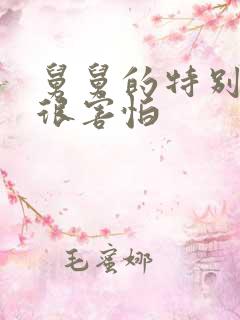 舅舅的特别
很害怕
毛蜜娜